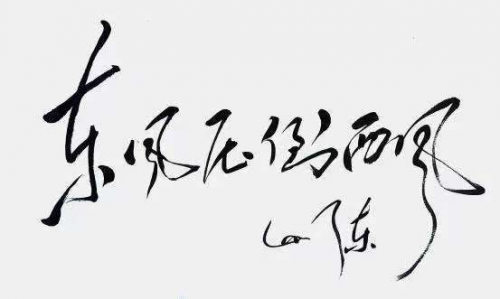 东风压倒西风
陈